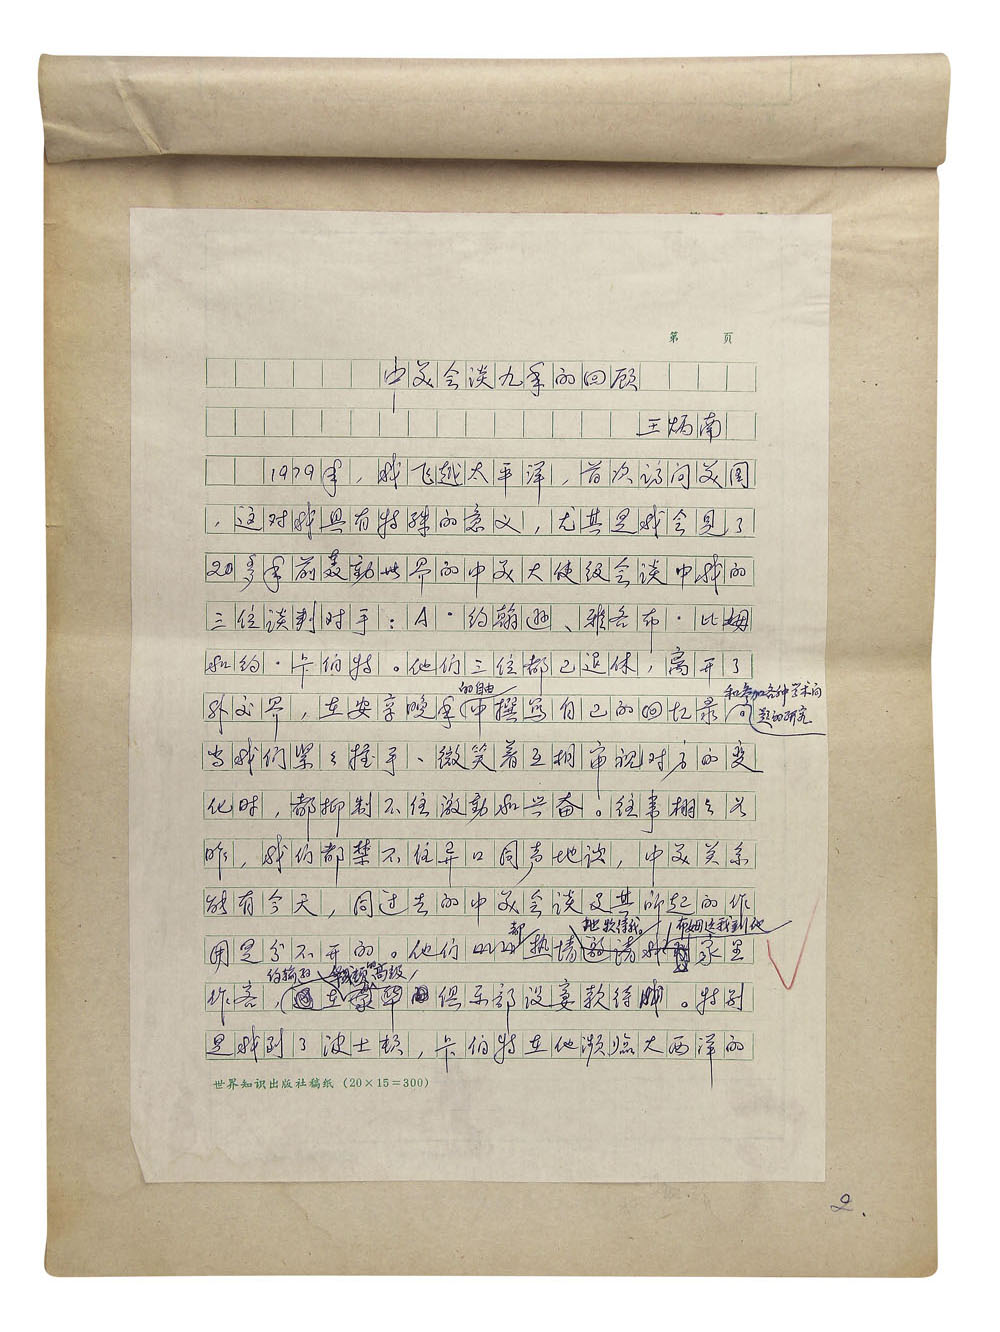 第 页
中美会谈九年的回顾
王炳南
1979年，我飞越太平洋，首次访问美国
，这对我具有特殊的意义，尤其是我会见了
20多年前轰动世界的中美大使级会谈中我的
三位谈判对手：A·约翰逊、雅各布·比姆
和约·卡伯特。他们三位都已退休，离开了
的自由
和参加各种学术问
题的研究
外交界，在安享晚年中撰写自己的回忆录。
当我们紧々握手、微笑着互相审视对方的变
化时，都抑制不住激动和兴奋。往事栩々如
昨，我们都禁不住异口同声地说，中美关系
能有今天，同过去的中美会谈及其所起的作
都 地款待我。 布姆送我到他
用是分不开的。他们 热情邀请我 家里
约翰逊 华盛顿的高级
作客， 在豪华 俱乐部设宴款待 。特别
是我到了波士顿，卡伯特在他濒临大西洋的
世界知识出版社稿纸（20×15=300）
2.